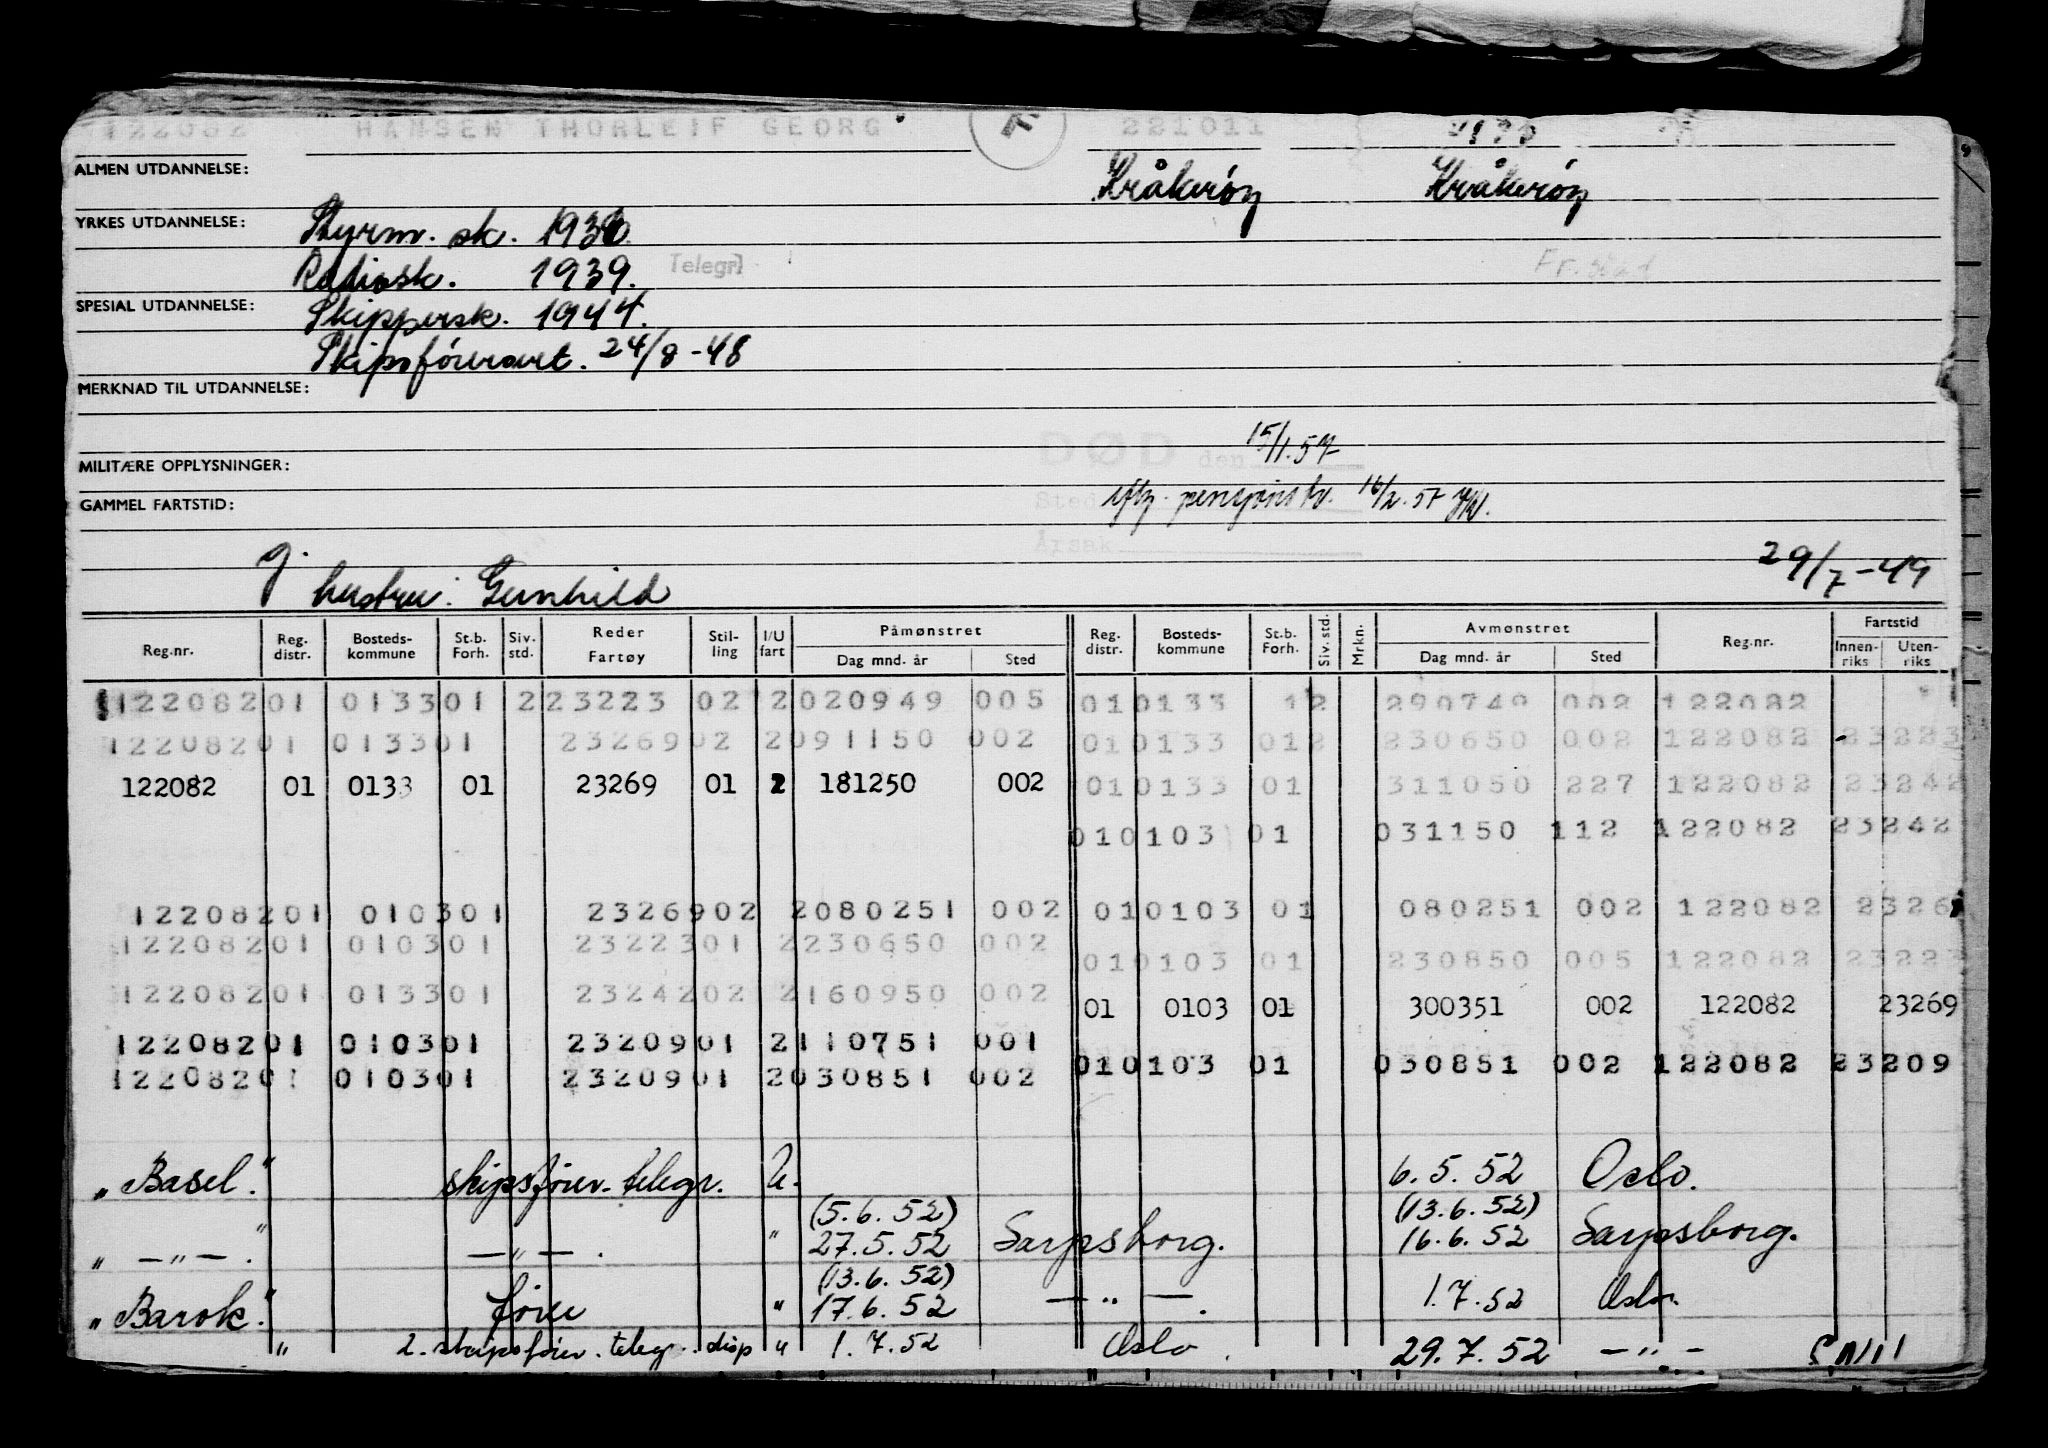 122082 HANSEN THORLEIF GEORG 221011
ALMEN UTDANNELSE: Kråkerøy Kråkerøy
YRKES UTDANNELSE: Styrm. sk. 1936.
Radiosk. 1939. Telegr. Fr.stad
SPESIAL UTDANNELSE: Skippersk. 1944.
Skipsførersert. 24/8-48
MERKNAD TIL UTDANNELSE:
DØD den 15/1.57
MILITÆRE OPPLYSNINGER:
Sted 16/2.57
GAMMEL FARTSTID:
Årsak
g. hustru: Gunhild 29/7-49
Reg.nr. Reg. distr. Bosteds-kommune St.b. Forh. Siv. std. Reder Fartøy Stil-ling I/U fart Påmønstret Dag mnd. år Sted Reg. distr. Bosteds-kommune St.b. Forh. Siv. std. Mrkn. Avmønstret Dag mnd. år Sted Reg.nr. Fartstid Innen-riks Uten-riks
122082 01 0133 01 2 23223 02 2 020949 005 01 0133 12 290749 002 122082
122082 01 0133 01 23269 02 2 091150 002 01 0133 01 2 230650 002 122082 23223
122082 01 0133 01 23269 01 2 181250 002 01 0133 01 311050 227 122082 23242
01 0103 01 031150 112 122082 23242
122082 01 0103 01 23269 02 2 080251 002 01 0103 01 080251 002 122082 2326
122082 01 0103 01 23223 01 2 230650 002 01 0103 01 230850 005 122082 23223
122082 01 0133 01 23242 02 2 160950 002 01 0103 01 300351 002 122082 23269
122082 01 0103 01 23209 01 2 110751 001 01 0103 01 030851 002 122082 23209
122082 01 0103 01 23209 01 2 030851 002
"Basel." skipsfører-telegr. U. 6.5.52 Oslo.
(5.6.52) (13.6.52)
" — " — . " — " — . " 27.5.52 Sarpsborg. 16.6.52 Sarpsborg.
(13.6.52)
"Barok." fører " 17.6.52 — " — . 1.7.52 Oslo.
" 2. skipsfører. telegr. disp " 1.7.52 Oslo. 29.7.52 — " —